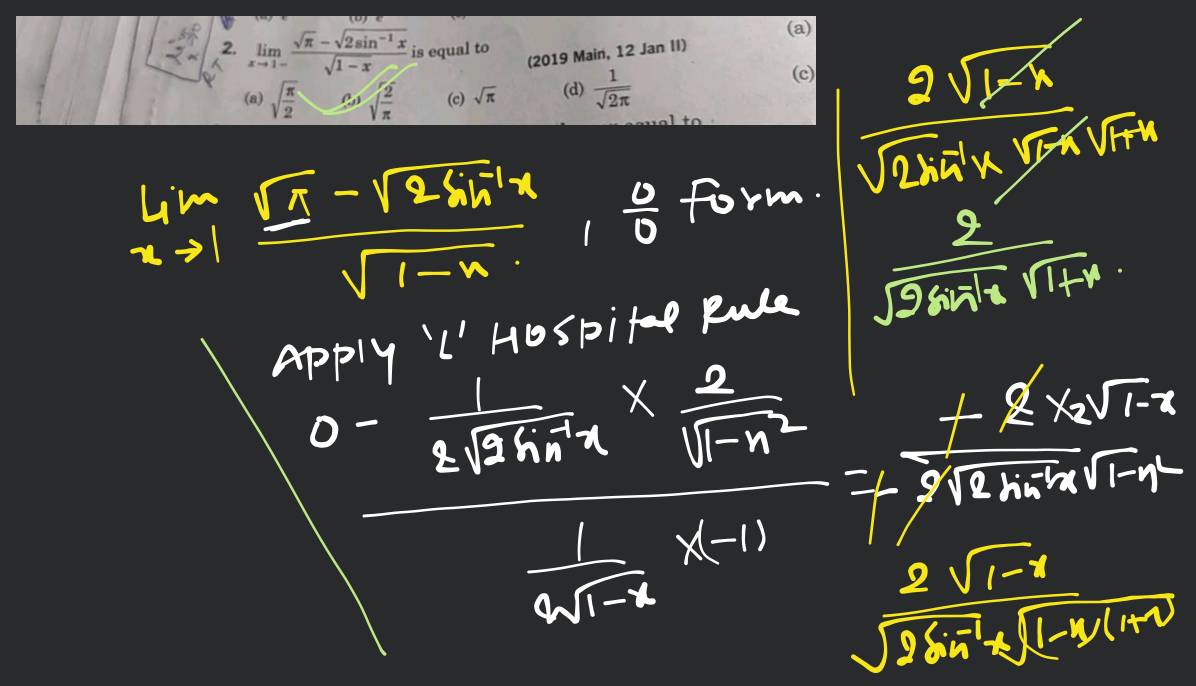 2. lim x→1- (√π − √(2 sin⁻¹ x)) / √(1−x) is equal to
(2019 Main, 12 Jan II)
(a) √(π/2) (b) √(2/π) (c) √π (d) 1/√(2π)
(a)
(c)
Lim x→1 (√π − √(2 sin⁻¹x)) / √(1−x) . , 0/0 Form.
Apply 'L' Hospital Rule
0 − 1/(2√(2 sin⁻¹x)) × 2/√(1−x²)
1/(2√(1−x)) × (−1)
= − 2 × 2√(1−x) / − 2√(2 sin⁻¹x) √(1−x²)
2 √(1−x) / √(2 sin⁻¹x) √((1−x)(1+x))
2 √(1−x) / √(2 sin⁻¹x) √(1−x) √(1+x)
2 / √(2 sin⁻¹x) √(1+x) .